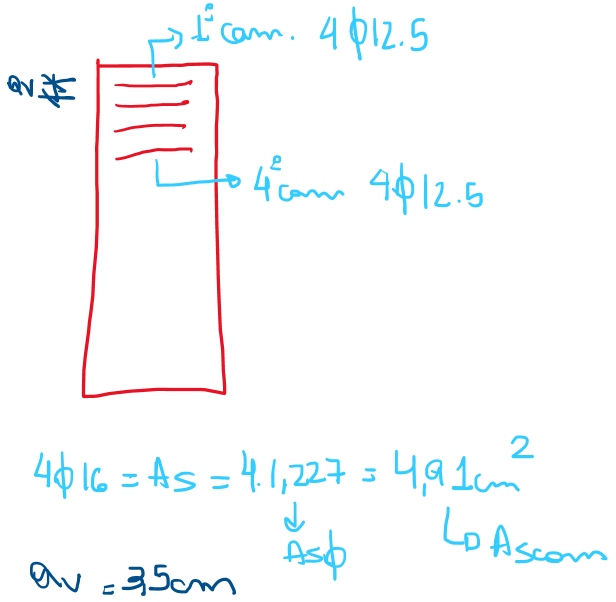 1ª cam. 4ϕ12.5
av
4ª cam 4ϕ12.5
4ϕ16 = As = 4.1,227 = 4,91cm²
Asϕ
Ascam
av = 3,5cm